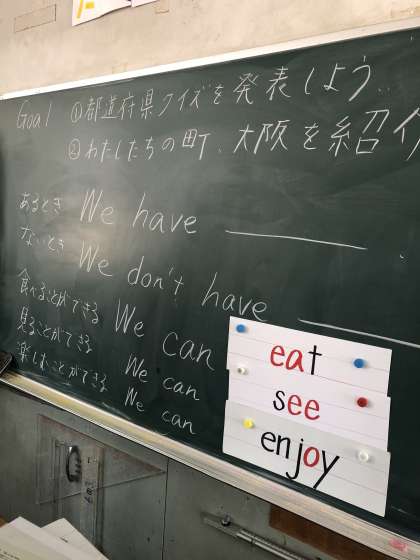 Goal ①都道府県クイズを発表しよう..
②わたしたちの町、大阪を紹介
あるとき We have ______ .
ないとき We don't have ______
食べることができる We can eat
見ることができる We can see
楽しむことができる We can enjoy